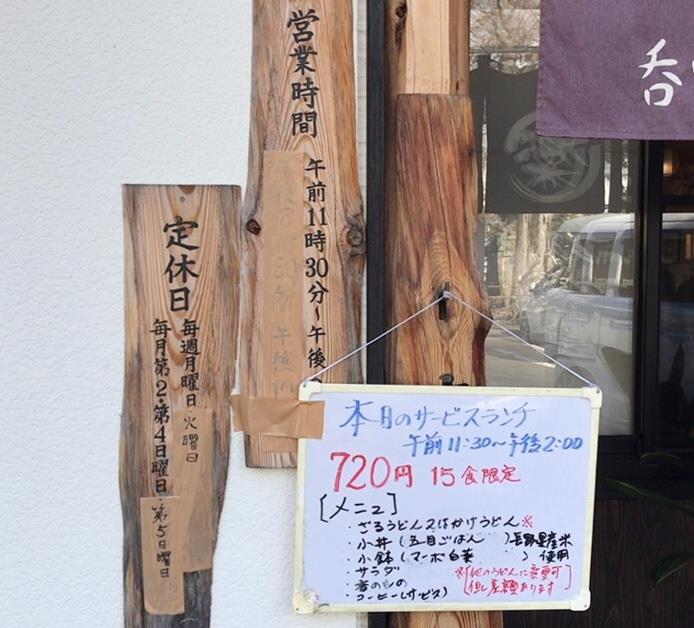 営業時間
午前11時30分～午後
定休日
毎週月曜日・火曜日
毎月第2・第4日曜日・第5日曜日
呑
本日のサービスランチ
午前11:30～午後2:00
720円 15食限定
［メニュー］
・ざるうどん又はかけうどん※
・小丼（五目ごはん ）長野県産米
・小鉢（マーボ白菜 ）使用
・サラダ
・香のもの
・コーヒー（サービス）
※［他のうどんに変更可
但し差額あります］